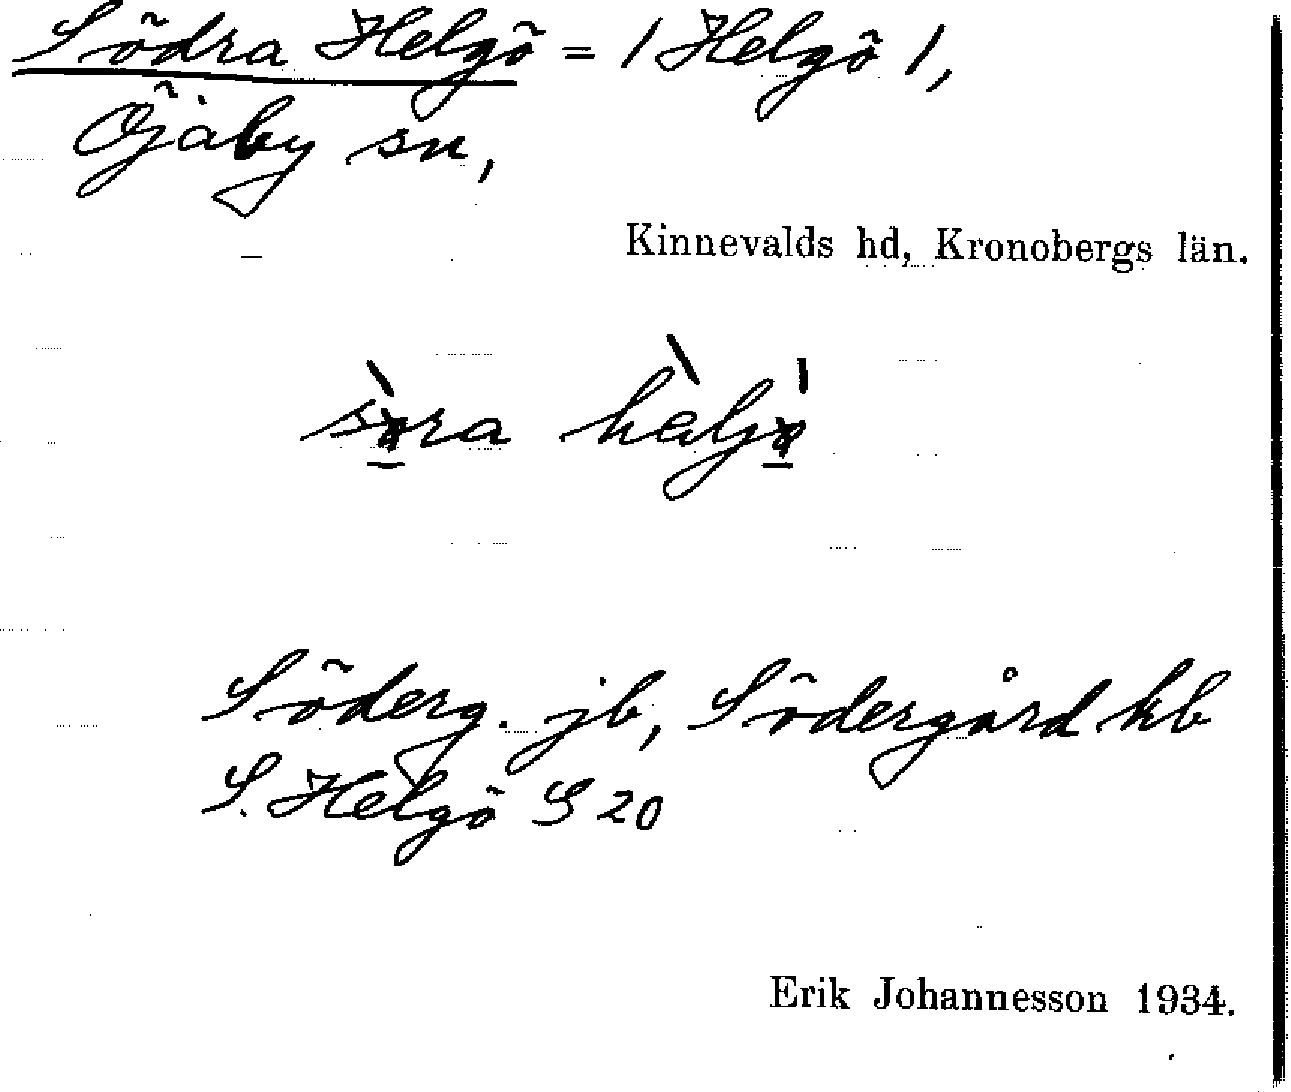 Södra Helgö = / Helgö /,
Öjaby sn,
Kinnevalds hd, Kronobergs län.
Söderg. jb, Södergård hb
S. Helgö S 20
Erik Johannesson 1934.